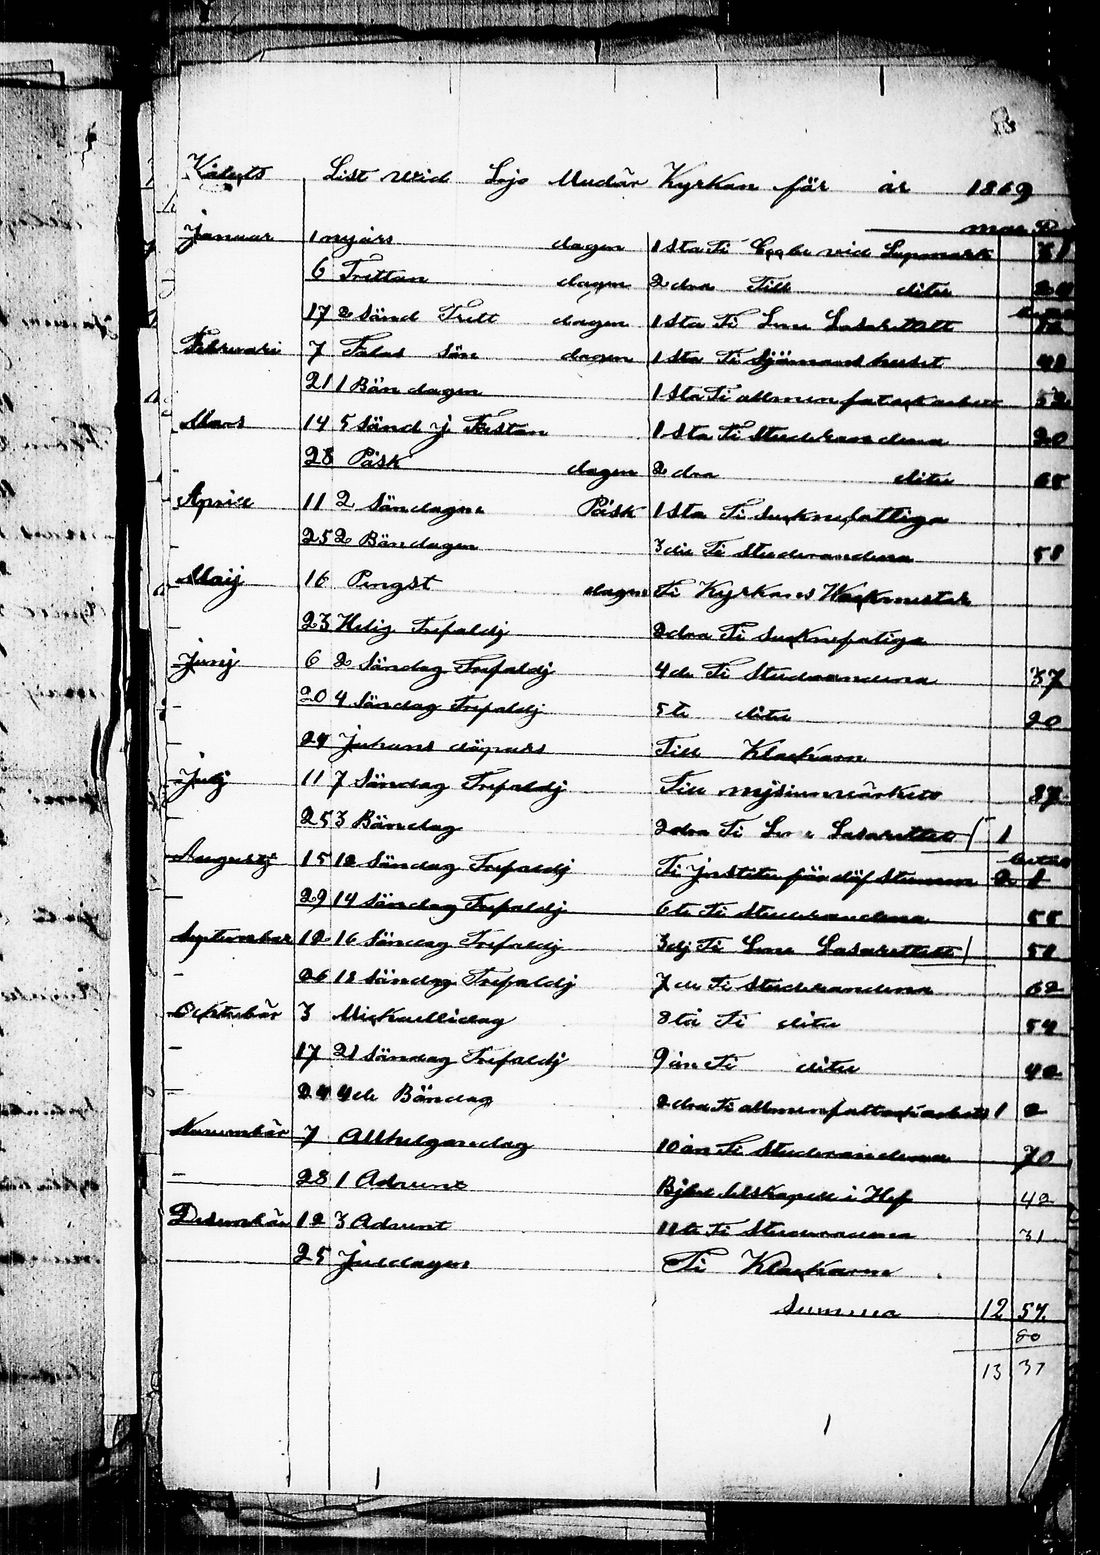 List wid Lojo Kyrkan får år 1869
mar
Januar 1 nyårs dagen 1 sta Ti wid 81
6 Trettan dagen 2 dra Till ditu
17 2 Sönd Trett dagen 1 sta Ti Lasarettett
Februari 7 Falas Sön dagen 1 sta Ti Sjömans huset
21 1 Bön dagen 1 sta Ti allmen 52
Mars 14 5 Sönd j Fastan 1 sta Ti Studerandena 20
28 Påsk dagen 2 dra ditu 68
April 11 2 Söndagen Påsk 1 sta Ti
25 2 Böndagen 3 die Ti Studerandena 58
Maij 16 Pingst dagen Ti Kyrkans Wackmestar
23 Helig Trefaldj 2 dra Ti
Junj 6 2 Söndag Trefaldj 4 de Ti Studerandena 37
20 4 Söndag Trefaldj 5 te ditu 20
24 Juhans döpars Till Klackarn
Julj 11 7 Söndag Trefaldj Till 27
25 3 Böndag 2 dra Ti Lasarettet 1
Augustj 15 12 Söndag Trefaldj Ti för döf Stumma 2 8
29 14 Söndag Trefaldj 6 te Ti Studerandena 55
September 12 16 Söndag Trefaldj 3 dj Ti Lasarettett 50
26 18 Söndag Trefaldj 7 de Ti Studerandena 62
Ochtubär 3 Mickaellidag 8 ta Ti ditu 54
17 21 Söndag Trefaldj 9 än Ti ditu 40
24 4 de Böndag 2 dra Ti allmen 1 2
Nuvembär 7 Allhelgondag 10 än Ti Studerandena 70
28 1 Advent i Hef 42
Desembär 12 3 Advent 11 te Ti 31
25 Juldagen Ti Klackarn
Summa 12 57
80
13 37